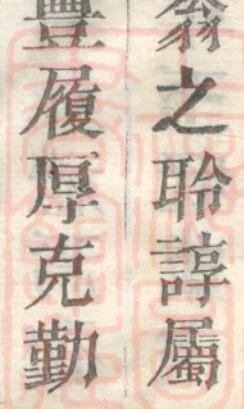 翁之聆諄屬
豐履厚克勤